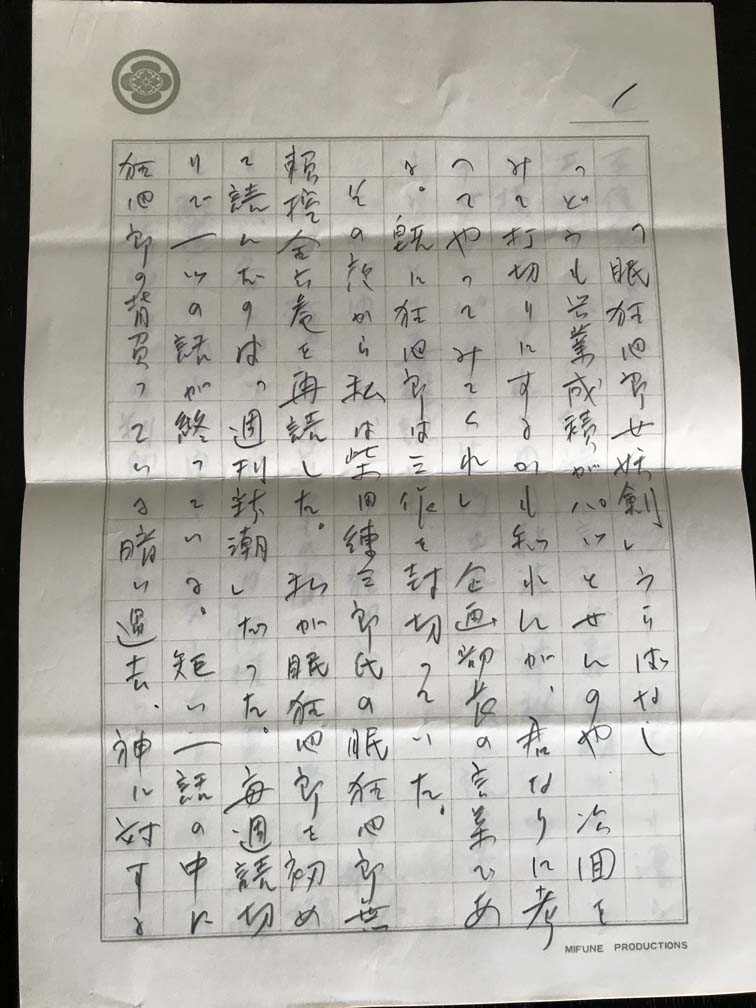 「眠狂四郎女妖剣」うらばなし
「どうも興業成績がパッとせんのや 次回を
みて打切りにするかも知れんが、君なりに考
へてやってみてくれ」企画部長の言葉であ
る。既に狂四郎は三作を封切っていた。
その から私は柴田錬三郎氏の眠狂四郎無
頼控全六巻を再読した。私が眠狂四郎を初め
て読んだのは「週刊新潮」だった。毎週読切
りで一つの話が終っている。短い一話の中に
狂四郎の背負っている暗い過去、神に対する
1
MIFUNE PRODUCTIONS